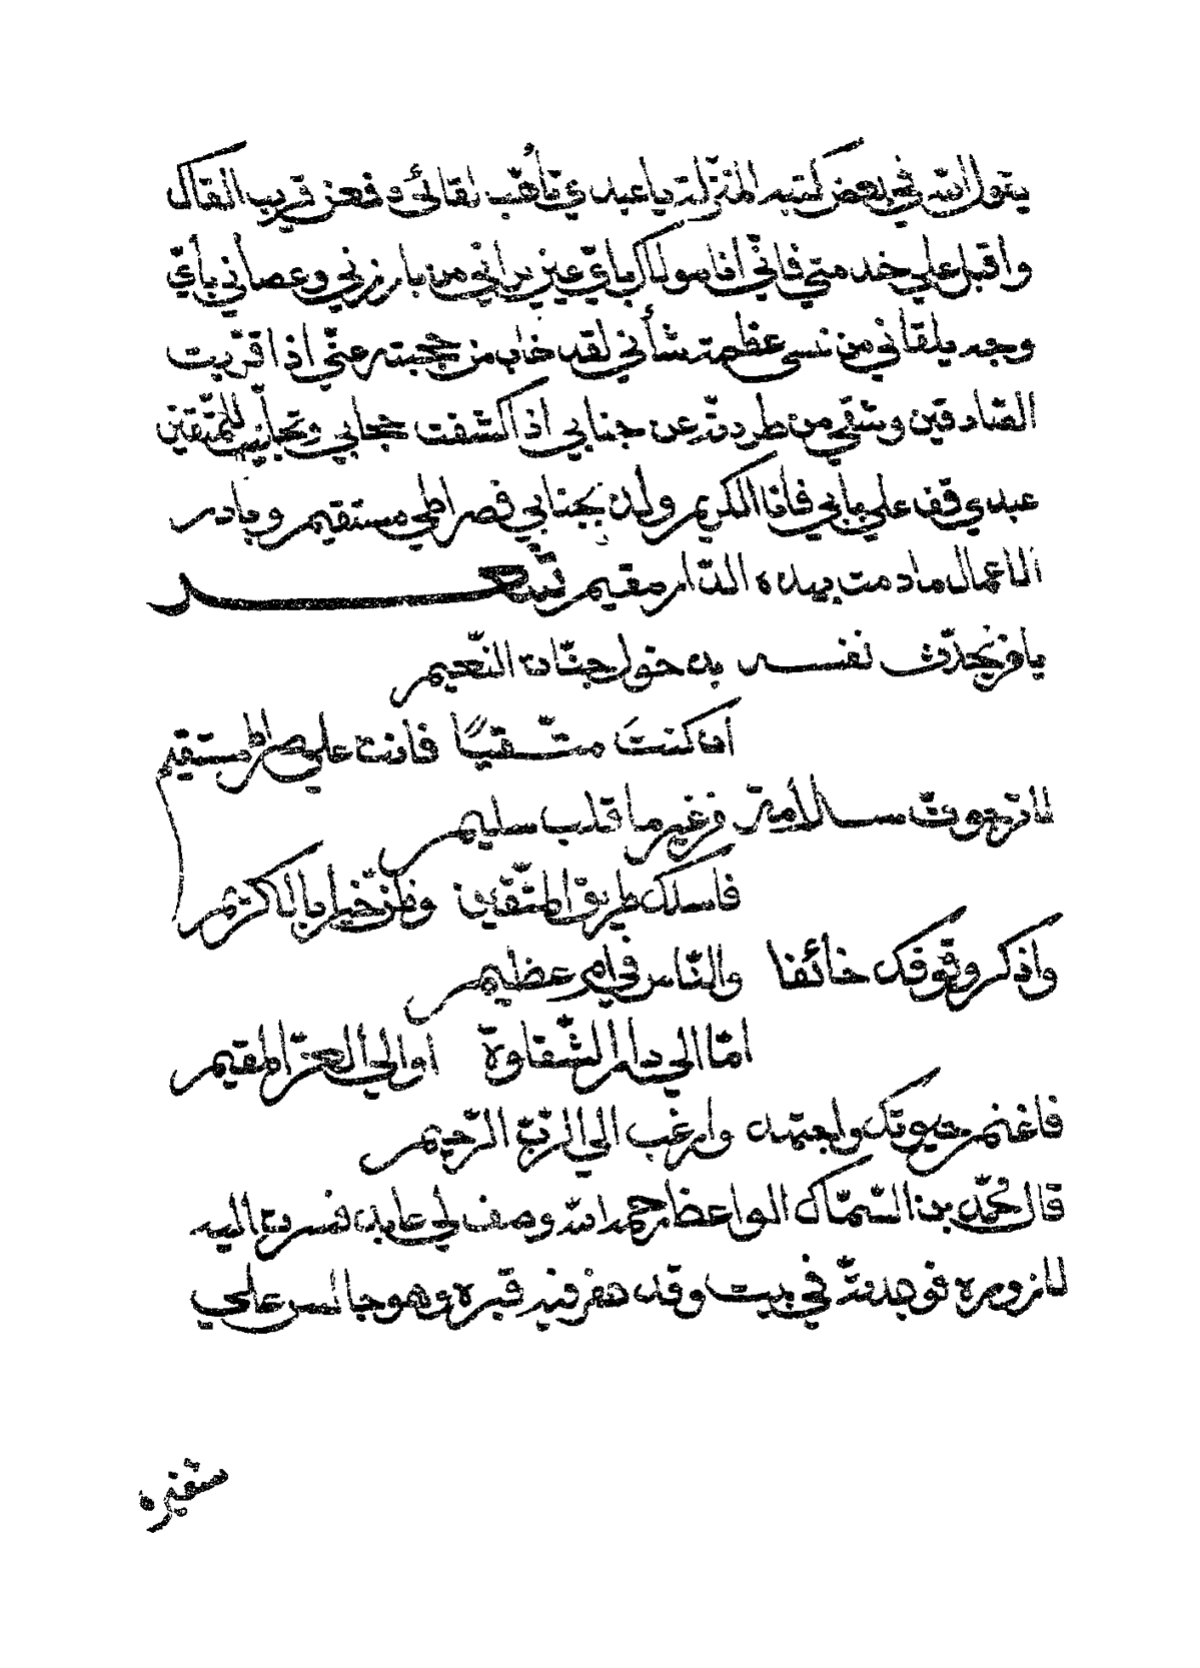 يقول الله في بعض كتبه المنزلة يا عبدي تأهّب لقائي وفعن قريب القاك
واقبل علي خدمتي فانّي انا مولاك باي عين يراني من بارزني وعصاني بأي
وجه يلقاني من نسى عظمة شأني لقد خاب من حجبته عنّي اذا قربت
الصّادقين وشقي من طردته عن جنابي اذا كشفت حجابي وتجلّيت للمتّقين
عبدي قف علي بابي فانا الكريم ولذ بجنابي فصراطي مستقيم وبادر
الاعمال ما دمت بهذه الدّار مقيم شعر
يا من يحدّث نفسه بدخول جنّات النّعيم
ان كنت متّقيًا فانت علي صراط مستقيم
لا ترجوت سلامة من غير ما قلب سليم
فاسلك طريق المتّقين وظن خيرا بالكريم
واذكر وقوفك خائفا والنّاس في امر عظيم
امّا الي دار الشّقاوة او الي العز المقيم
فاغنم حيوتك واجتهد وارغب الي الرّبّ الرّحيم
قال محمّد بن السّمّاك الواعظ رحمه الله وصف لي عابد فسرت اليه
لازوره فوجدته في بيت وقد حفر فيه قبره وهو جالس علي
شفيره